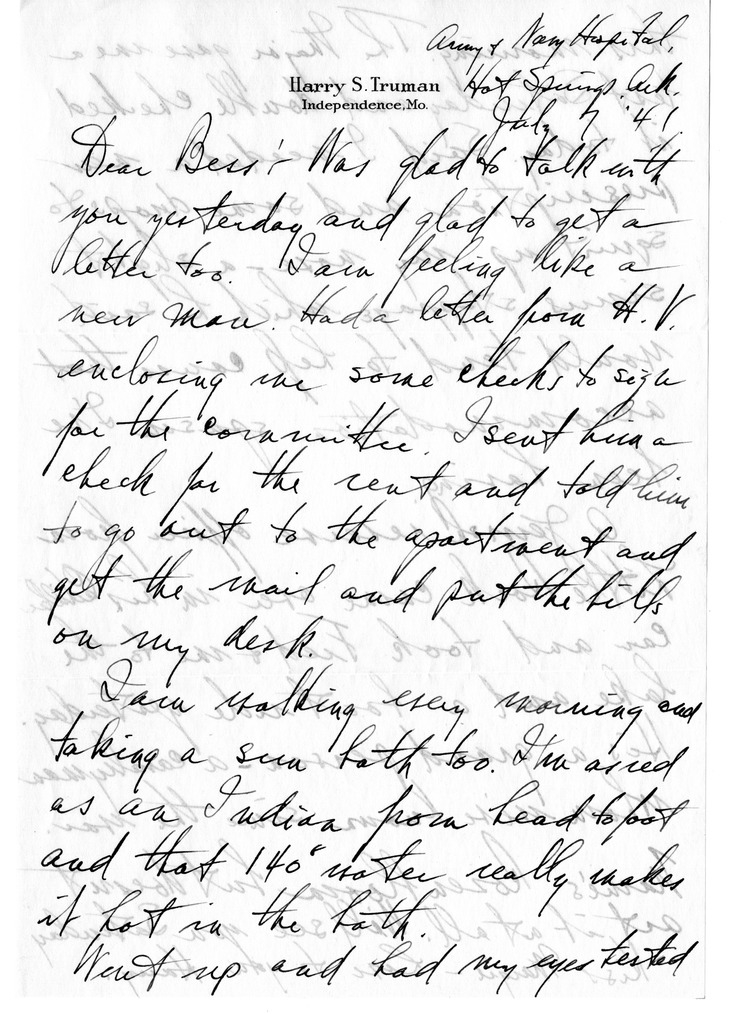 Army & Navy Hospital,
Harry S. Truman
Independence, Mo.
Hot Springs, Ark.
July 7 '41
Dear Bess:- Was glad to talk with
you yesterday and glad to get a
letter too. I am feeling like a
new man. Had a letter from H.V.
enclosing me some checks to sign
for the committee. I sent him a
check for the rent and told him
to go out to the apartment and
get the mail and put the bills
on my desk.
I am walking every morning and
taking a sun bath too. I'm as red
as an Indian from head to foot
and that 140° water really makes
it hot in the bath.
Went up and had my eyes tested